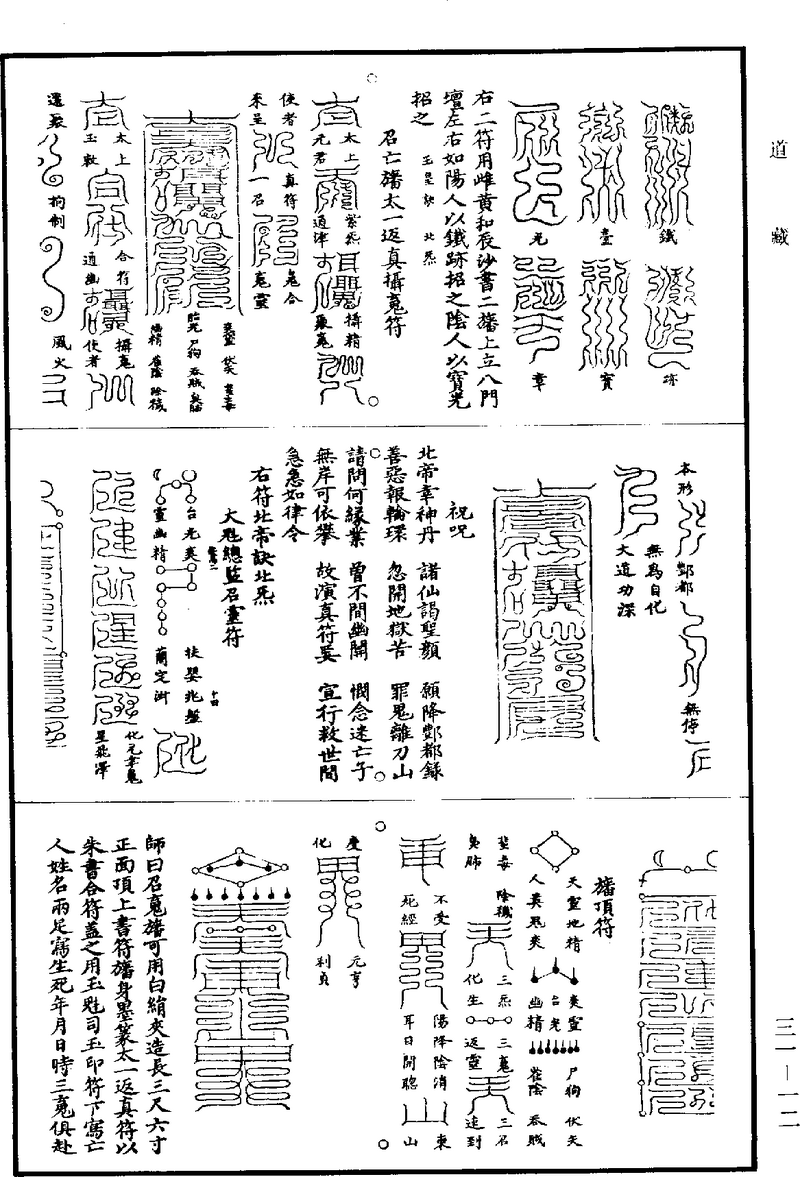 道藏
鐵
跡
臺
寶
光
章
右二符用雌黃和辰沙書二旛上立八門
壇左右如陽人以鐵跡招之陰人以寶光
招之
玉皇訣 北炁
召亡旛太一返真攝䰟符
太上
元君
紫炁
通津
攝精
聚䰟
使者
來呈
真符
一召
䰟合
䰟靈
爽靈 伏矢 雀陰
胎光 尸狗 吞賊 臭肺
幽精 雀陰 除穢
太上
玉敕
合符
通幽
攝䰟
使者
還聚
拘制
風火
本形
酆都
無停
無為自化
大道功深
祝呪
北帝章神丹 諸仙謁聖顏 願降酆都錄
善惡報輪環 忽開地獄苦 罪鬼離刀山
請問何緣業 曾不間幽關 憫念迷亡子
無岸可依攀 故演真符奧 宣行救世間
急急如律令
右符北帝訣北炁
大魁總監召靈符
台光爽
扶嬰兆盤
靈幽精
蘭定衛
化元幸䰟
星飛澤
旛頂符
天靈地精
人員鬼爽
爽靈
台光
幽精
尸狗 伏矢
雀陰 吞賊
蜚毒 除穢
臭肺
三炁
化生
三䰟
返靈
三召
速到
不受
死經
陽降陰消
耳目開聰
東
山
度
化
元亨
利貞
師曰召䰟旛可用白絹夾造長三尺六寸
正面頂上書符旛身墨篆太一返真符以
朱書合符蓋之用玉魁司玉印符下寫亡
人姓名兩足寫生死年月日時三䰟俱赴
三一—一二